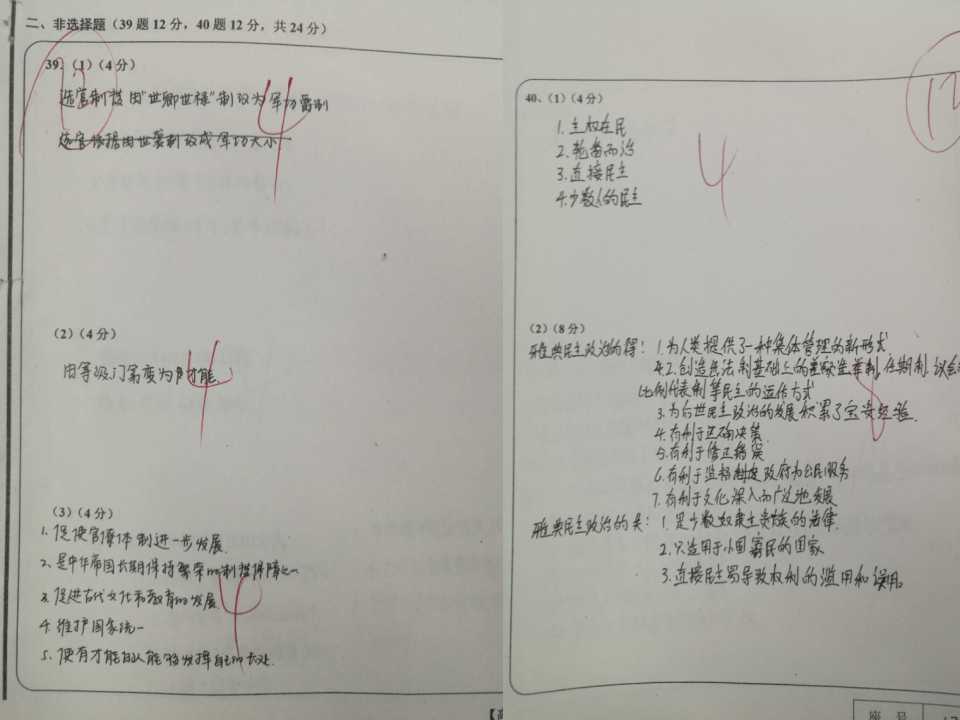 二、非选择题（39题12分，40题12分，共24分）
39、（1）（4分）
12
选官制度由“世卿世禄”制改为军功爵制
选官依据由世袭制改成军功大小
4
（2）（4分）
由等级门第变为才能
4
（3）（4分）
1. 促使官僚体制进一步发展
2、是中华帝国长期保持繁荣的制度保障之一
3. 促进古代文化和教育的发展
4. 维护国家统一
5. 使有才能的人能够发挥自己的长处.
4
40、（1）（4分）
12
1. 主权在民
2. 轮番而治
3. 直接民主
4. 少数人的民主
4
（2）（8分）
雅典民主政治的得： 1. 为人类提供了一种集体管理的新形式
2. 创造民法制基础上的选举制、任期制、议会
比例代表制等民主的运作方式
3. 为后世民主政治的发展积累了宝贵经验.
4. 有利于正确决策
5. 有利于修正错误
6. 有利于监督政府为公民服务
7. 有利于文化深入而广泛地发展
8
雅典民主政治的失： 1. 是少数奴隶主贵族的法律.
2. 只适用于小国寡民的国家
3. 直接民主易导致权利的滥用和误用
座号